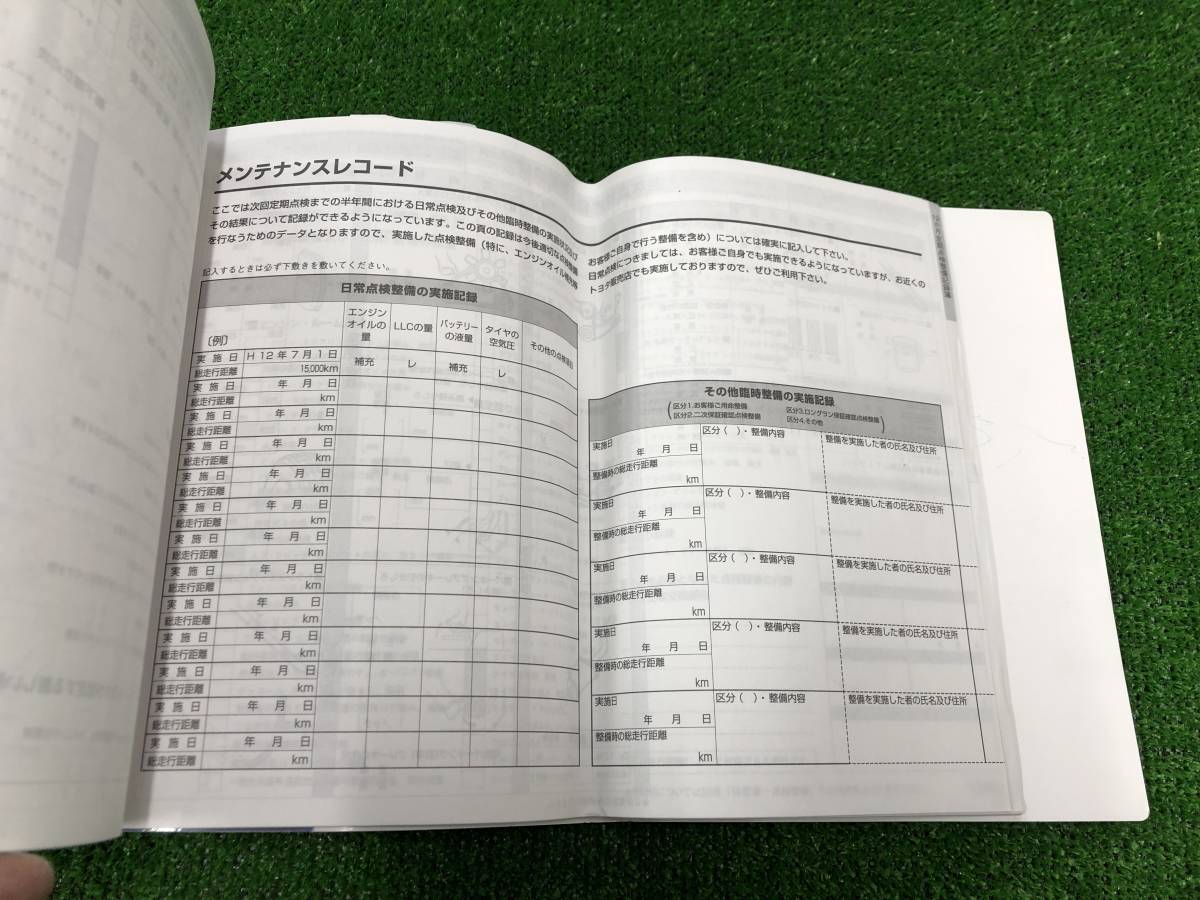 メンテナンスレコード
ここでは次回定期点検までの半年間における日常点検及びその他臨時整備の実施状況及び
その結果について記録ができるようになっています。この頁の記録は今後適切な点検整備
を行なうためのデータとなりますので、実施した点検整備（特に、エンジンオイル補充等
お客様ご自身で行う整備を含め）については確実に記入して下さい。
日常点検につきましては、お客様ご自身でも実施できるようになっていますが、お近くの
トヨタ販売店でも実施しておりますので、ぜひご利用下さい。
記入するときは必ず下敷きを敷いてください。
日常点検整備の実施記録
〔例〕
エンジン
オイルの
量
LLCの量
バッテリー
の液量
タイヤの
空気圧
その他の点検項目
実施日 H12年7月1日 補充 レ 補充 レ
総走行距離 15,000km
実施日 年 月 日
総走行距離 km
実施日 年 月 日
総走行距離 km
実施日 年 月 日
総走行距離 km
実施日 年 月 日
総走行距離 km
実施日 年 月 日
総走行距離 km
実施日 年 月 日
総走行距離 km
実施日 年 月 日
総走行距離 km
実施日 年 月 日
総走行距離 km
実施日 年 月 日
総走行距離 km
実施日 年 月 日
総走行距離 km
実施日 年 月 日
総走行距離 km
実施日 年 月 日
総走行距離 km
その他臨時整備の実施記録
区分1.お客様ご用命整備 区分3.ロングラン保証確認点検整備
区分2.二次保証確認点検整備 区分4.その他
実施日 区分（ ）・整備内容 整備を実施した者の氏名及び住所
年 月 日
整備時の総走行距離
km
実施日 区分（ ）・整備内容 整備を実施した者の氏名及び住所
年 月 日
整備時の総走行距離
km
実施日 区分（ ）・整備内容 整備を実施した者の氏名及び住所
年 月 日
整備時の総走行距離
km
実施日 区分（ ）・整備内容 整備を実施した者の氏名及び住所
年 月 日
整備時の総走行距離
km
実施日 区分（ ）・整備内容 整備を実施した者の氏名及び住所
年 月 日
整備時の総走行距離
km